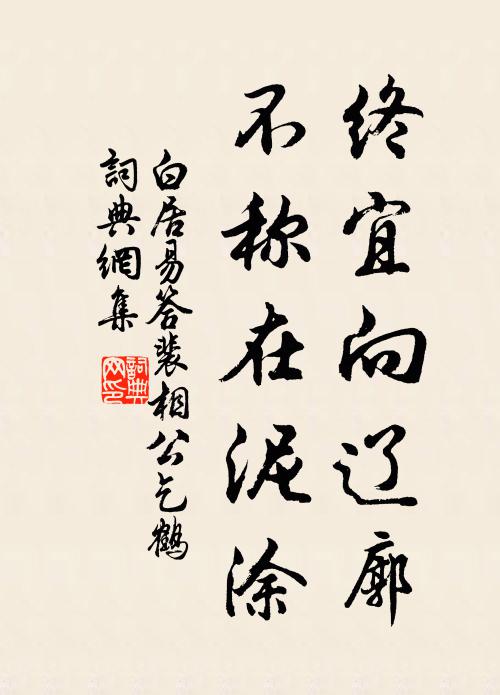 终宜向辽廓
不称在泥涂
白居易答裴相公乞鹤
詞典網集
詞典网印